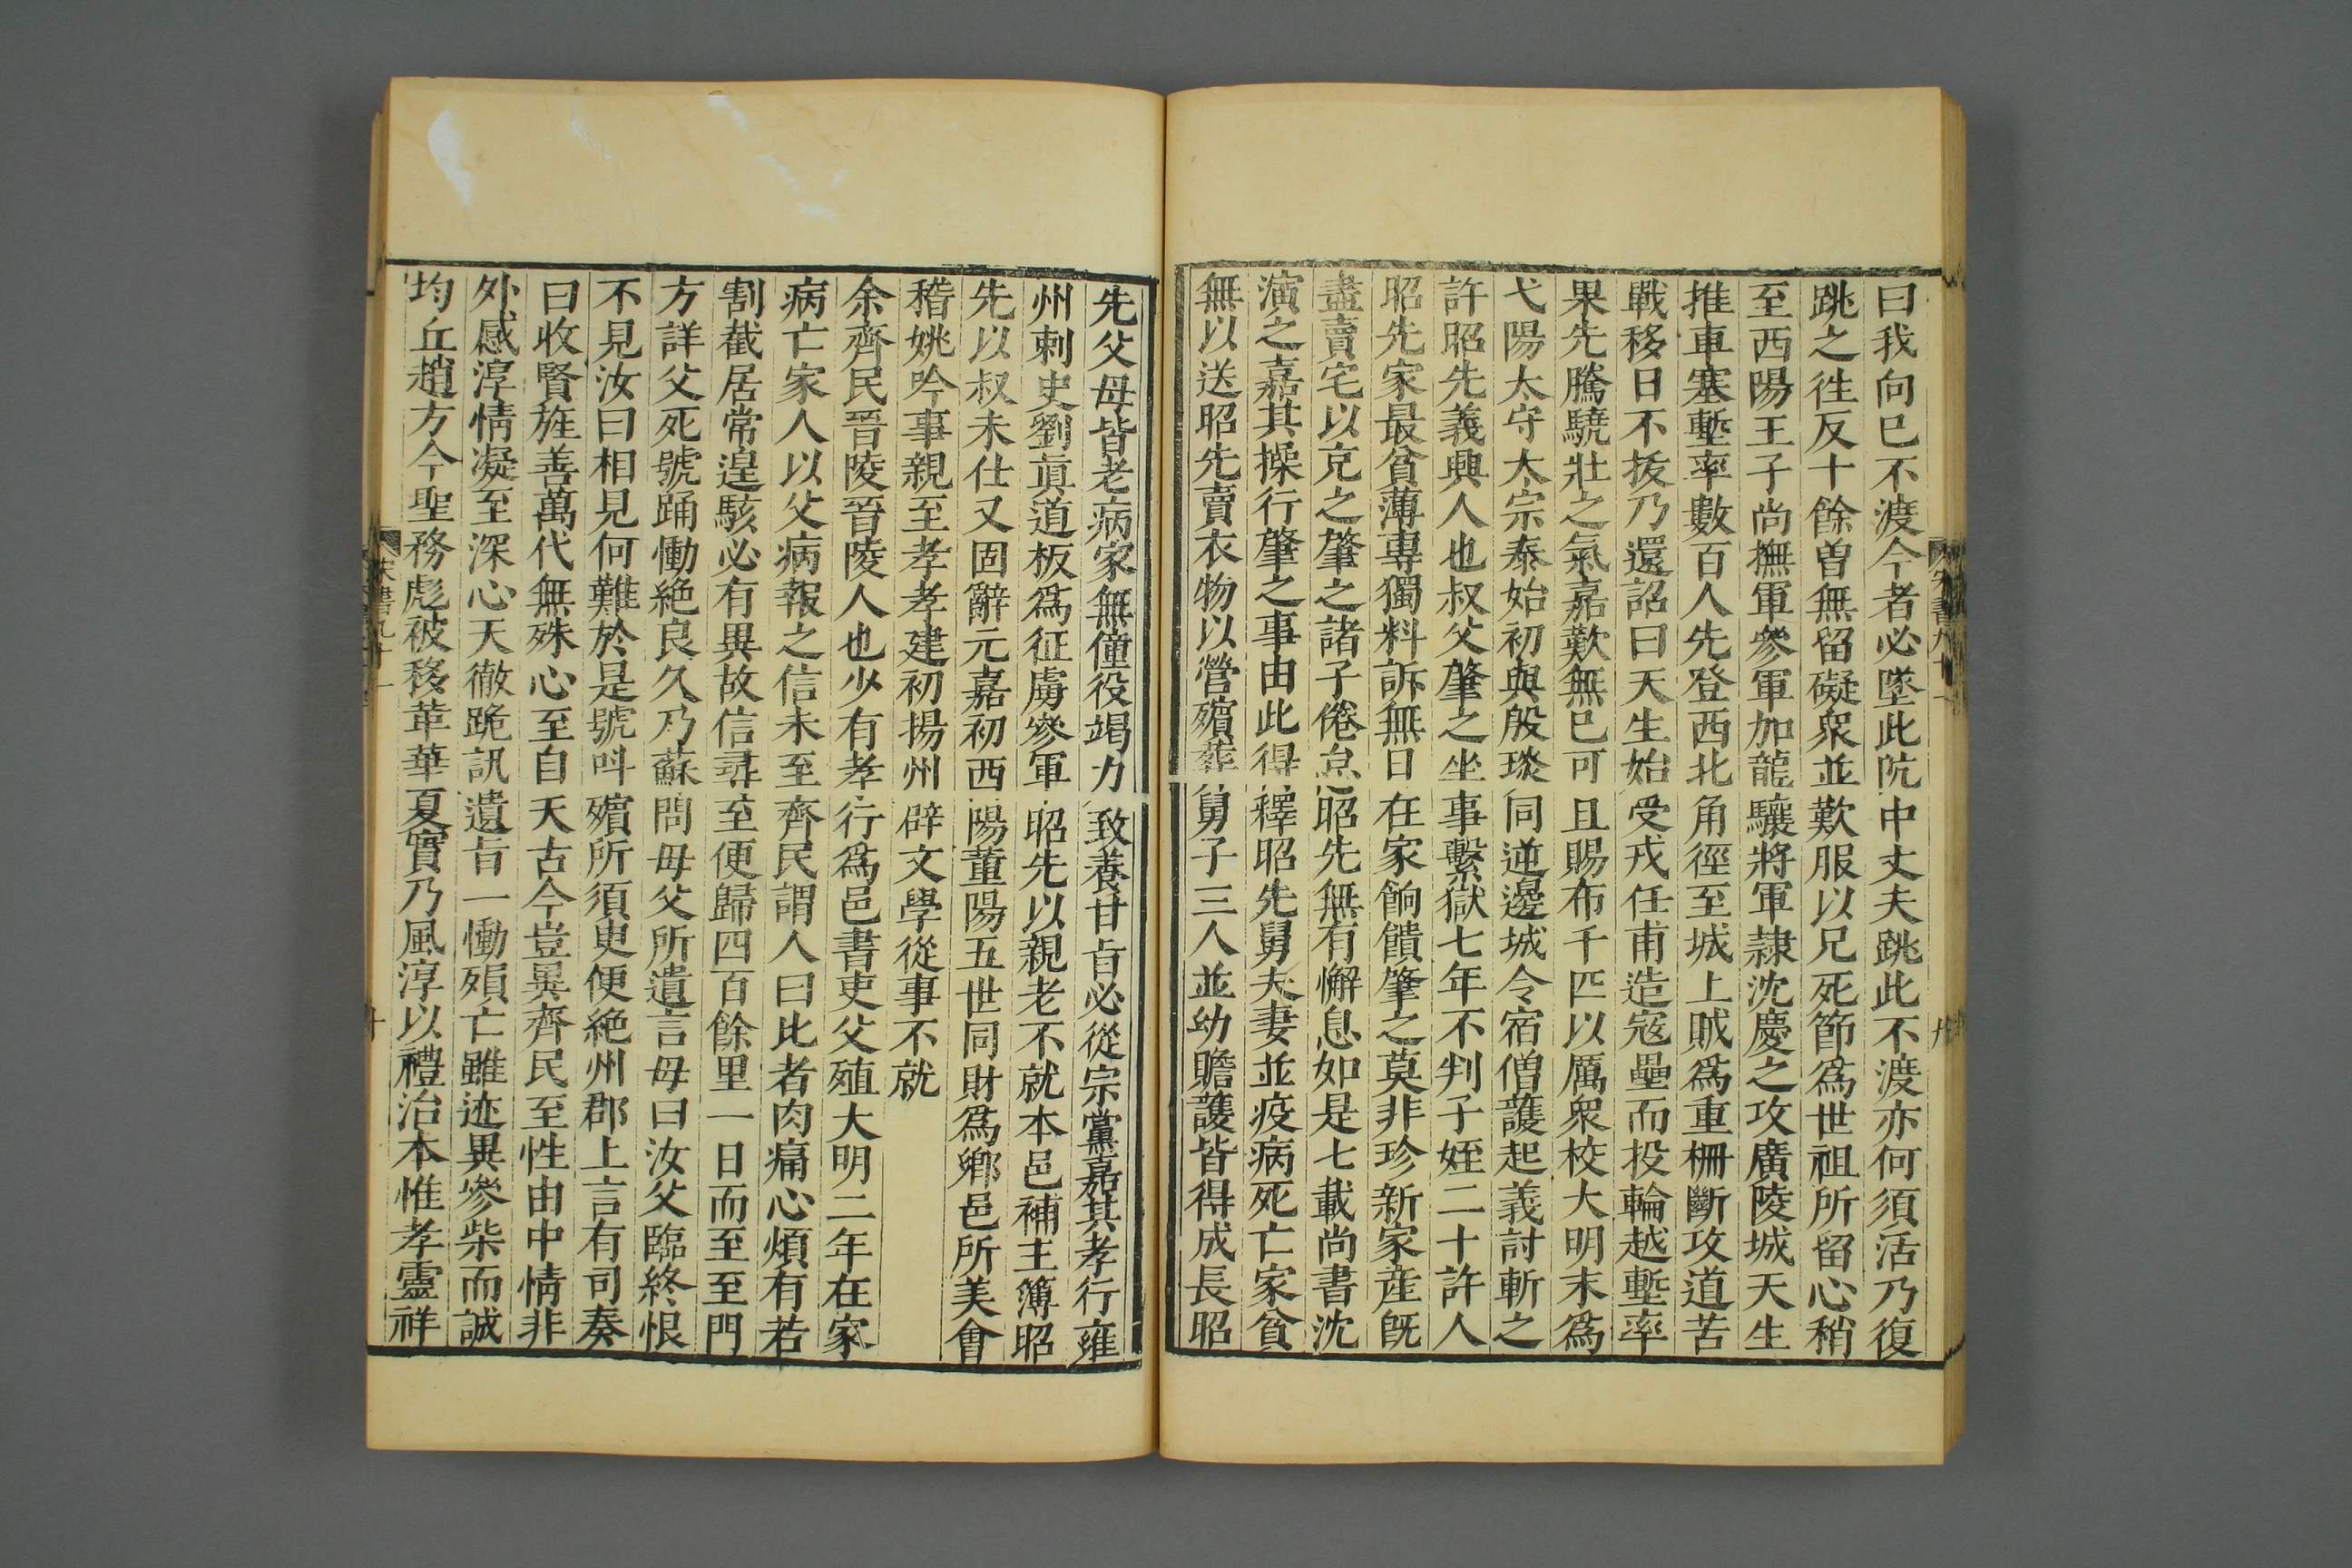 曰我向已不渡今者必墜此阬中丈夫跳此不渡亦何須活乃復
跳之徃反十餘曽無留礙衆並歎服以兄死節爲世祖所留心稍
至西陽王子尚撫軍參軍加龍驤將軍隷沈慶之攻廣陵城天生
推車塞塹率數百人先登西北角徑至城上賊爲重柵斷攻道苦
戰移日不拔乃還詔曰天生始受戎任甫造寇壘而投輪越塹率
果先騰驍壯之氣嘉歎無已可且賜布千匹以厲衆校大明末爲
弋陽太守太宗泰始初與殷琰同逆邊城令宿僧護起義討斬之
許昭先義興人也叔父肇之坐事繫獄七年不判子姪二十許人
昭先家最貧薄專獨料訴無日在家餉饋肇之莫非珍新家産旣
盡賣宅以充之肇之諸子倦怠昭先無有懈息如是七載尚書沈
演之嘉其操行肇之事由此得釋昭先舅夫妻並疫病死亡家貧
無以送昭先賣衣物以營殯葬舅子三人並幼贍護皆得成長昭
先父母皆老病家無僮役竭力致養甘旨必從宗黨嘉其孝行雍
州刺史劉眞道板爲征虜參軍昭先以親老不就本邑補主簿昭
先以叔未仕又固辭元嘉初西陽董陽五世同財爲鄉邑所美會
稽姚吟事親至孝孝建初揚州辟文學從事不就
余齊民晉陵晉陵人也少有孝行爲邑書吏父殖大明二年在家
病亡家人以父病報之信未至齊民謂人曰比者肉痛心煩有若
割截居常遑駭必有異故信尋至便歸四百餘里一日而至至門
方詳父死號踊慟絶良久乃蘇問母父所遺言母曰汝父臨終恨
不見汝曰相見何難於是號呌殯所須臾便絶州郡上言有司奏
曰收賢旌善萬代無殊心至自天古今豈異齊民至性由中情非
外感淳情凝至深心天徹跪訊遺旨一慟殞亡雖迹異參柴而誠
均丘趙方今聖務彪被移革華夏實乃風淳以禮治本惟孝靈祥
宋書九十一
十